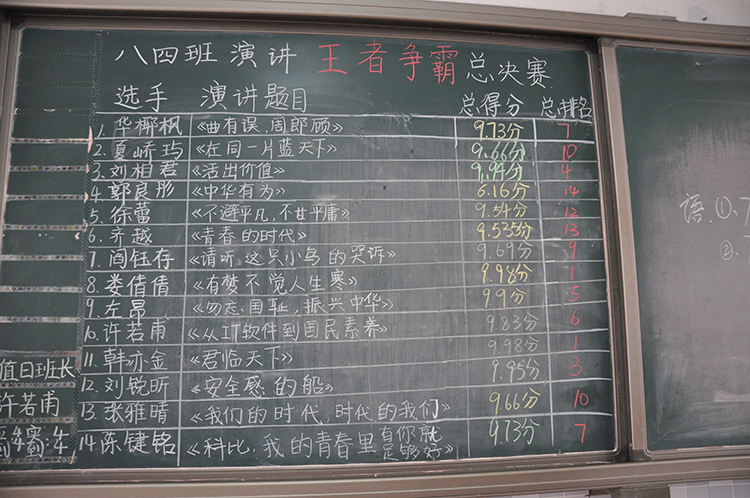 八四班 演讲 王者争霸 总决赛
选手 演讲题目 总得分 总排名
1. 华椰枫 《曲有误,周郎顾》 9.73分 7
2. 夏峤玙 《在同一片蓝天下》 9.66分 10
3. 刘相君 《活出价值》 9.94分 4
4. 郭良彤 《中华有为》 6.16分 14
5. 徐蕾 《不避平凡,不甘平庸》 9.54分 12
6. 齐越 《青春的时代》 9.535分 13
7. 阎钰存 《请听,这只小鸟的哭诉》 9.69分 9
8. 娄倩倩 《有梦不觉人生寒》 9.98分 1
9. 左昂 《勿忘国耻,振兴中华》 9.9分 5
10. 许若甫 《从IT软件到国民素养》 9.83分 6
11. 韩亦金 《君临天下》 9.98分 1
12. 刘锐昕 《安全感的船》 9.95分 3
13. 张雅晴 《我们的时代,时代的我们》 9.66分 10
14. 陈键铭 《科比,我的青春里有你就足够好》 9.73分 7
值日班长
许若甫
语 ①.7
②.